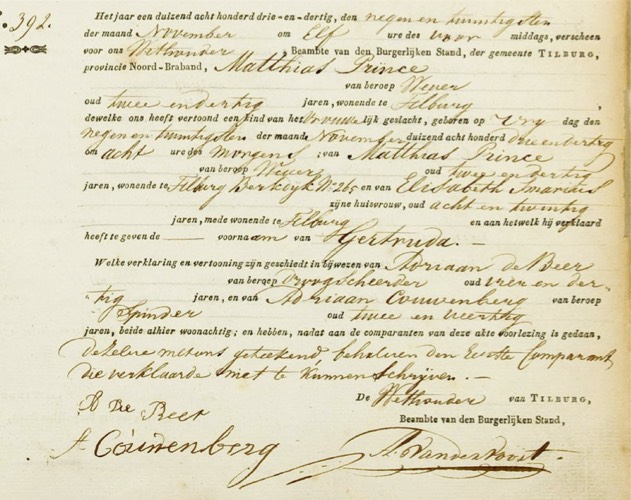 N. 392.
Het jaar een duizend acht honderd drie-en-dertig, den negen en twintigsten
der maand November om Elf ure des voor middags, verscheen
voor ons Wethouder Beambte van den Burgerlijken Stand, der gemeente TILBURG,
provincie Noord-Braband, Matthias Prince
van beroep Wever
oud twee en dertig jaren, wonende te Tilburg,
dewelke ons heeft vertoond een kind van het Vrouwelijk geslacht, geboren op Vry dag den
negen en twintigsten der maande November duizend acht honderd drie en dertig
om acht ure des Morgens; van Matthias Prince
van beroep Wever oud twee en dertig
jaren, wonende te Tilburg Berkdyk N. 265 en van Elisabeth Smarius
zijne huisvrouw, oud acht en twintig
jaren, mede wonende te Tilburg en aan hetwelk hij verklaard
heeft te geven de voornaam van Gertruda. —
Welke verklaring en vertooning zijn geschiedt in bijwezen van Adriaan de Beer
van beroep Droogscheerder oud vier en der-
tig jaren, en van Adriaan Couwenberg van beroep
Spinder oud twee en veertig
jaren, beide alhier woonachtig; en hebben, nadat aan de comparanten van deze akte voorlezing is gedaan,
dezelve met ons geteekend, behalven den Eerste Comparant
die verklaarde niet te kunnen schrijven.—
De Wethouder van TILBURG,
Beambte van den Burgerlijken Stand,
A De Beer
A. Couwenberg
A. Vandervoost.